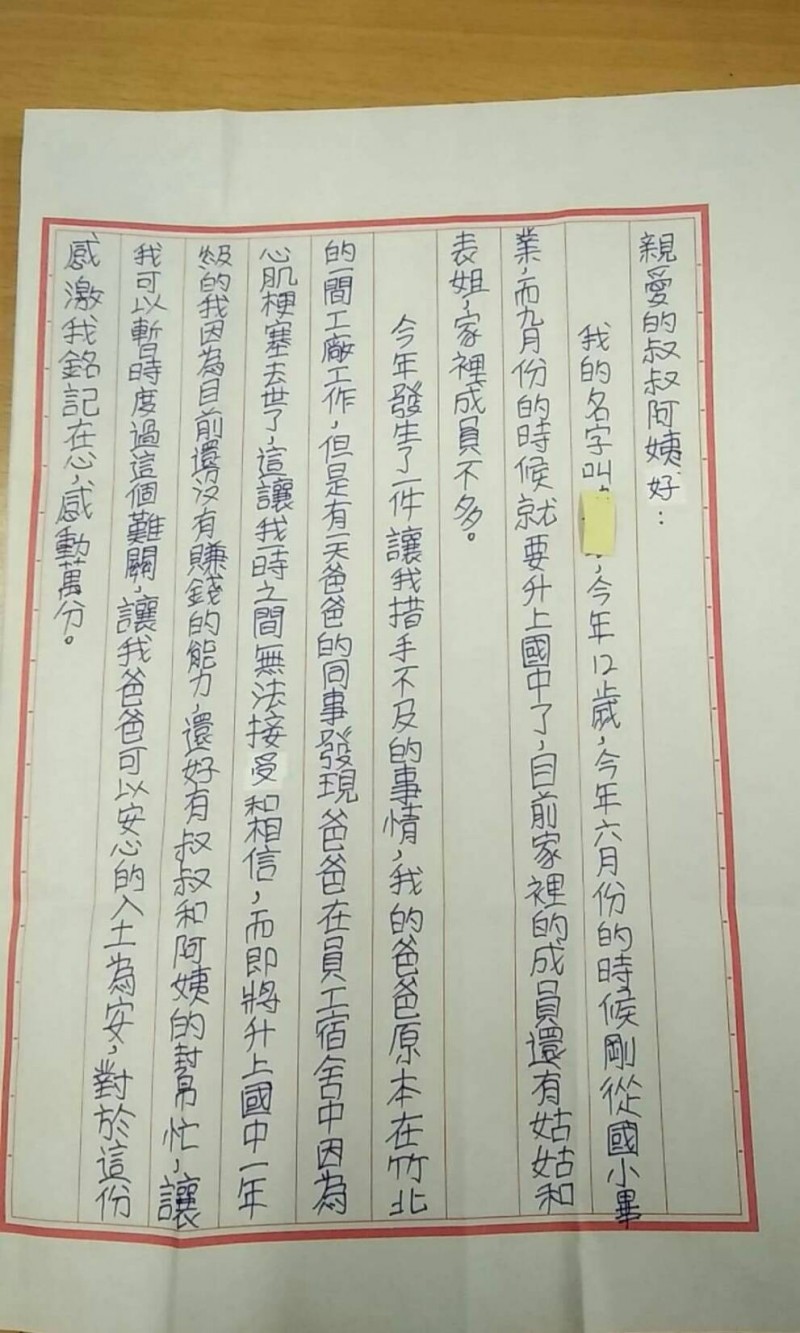 親愛的叔叔阿姨好:
我的名字叫,今年12歲,今年六月份的時候剛從國小畢
業,而九月份的時候就要升上國中了,目前家裡的成員還有姑姑和
表姐,家裡成員不多。
今年發生了一件讓我措手不及的事情,我的爸爸原本在竹北
的一間工廠工作,但是有一天爸爸的同事發現爸爸在員工宿舍中因為
心肌梗塞去世了,這讓我一時之間無法接受和相信,而即將升上國中一年
級的我因為目前還沒有賺錢的能力,還好有叔叔和阿姨的幫忙,讓
我可以暫時度過這個難關,讓我爸爸可以安心的入土為安,對於這份
感激我銘記在心,感動萬分。